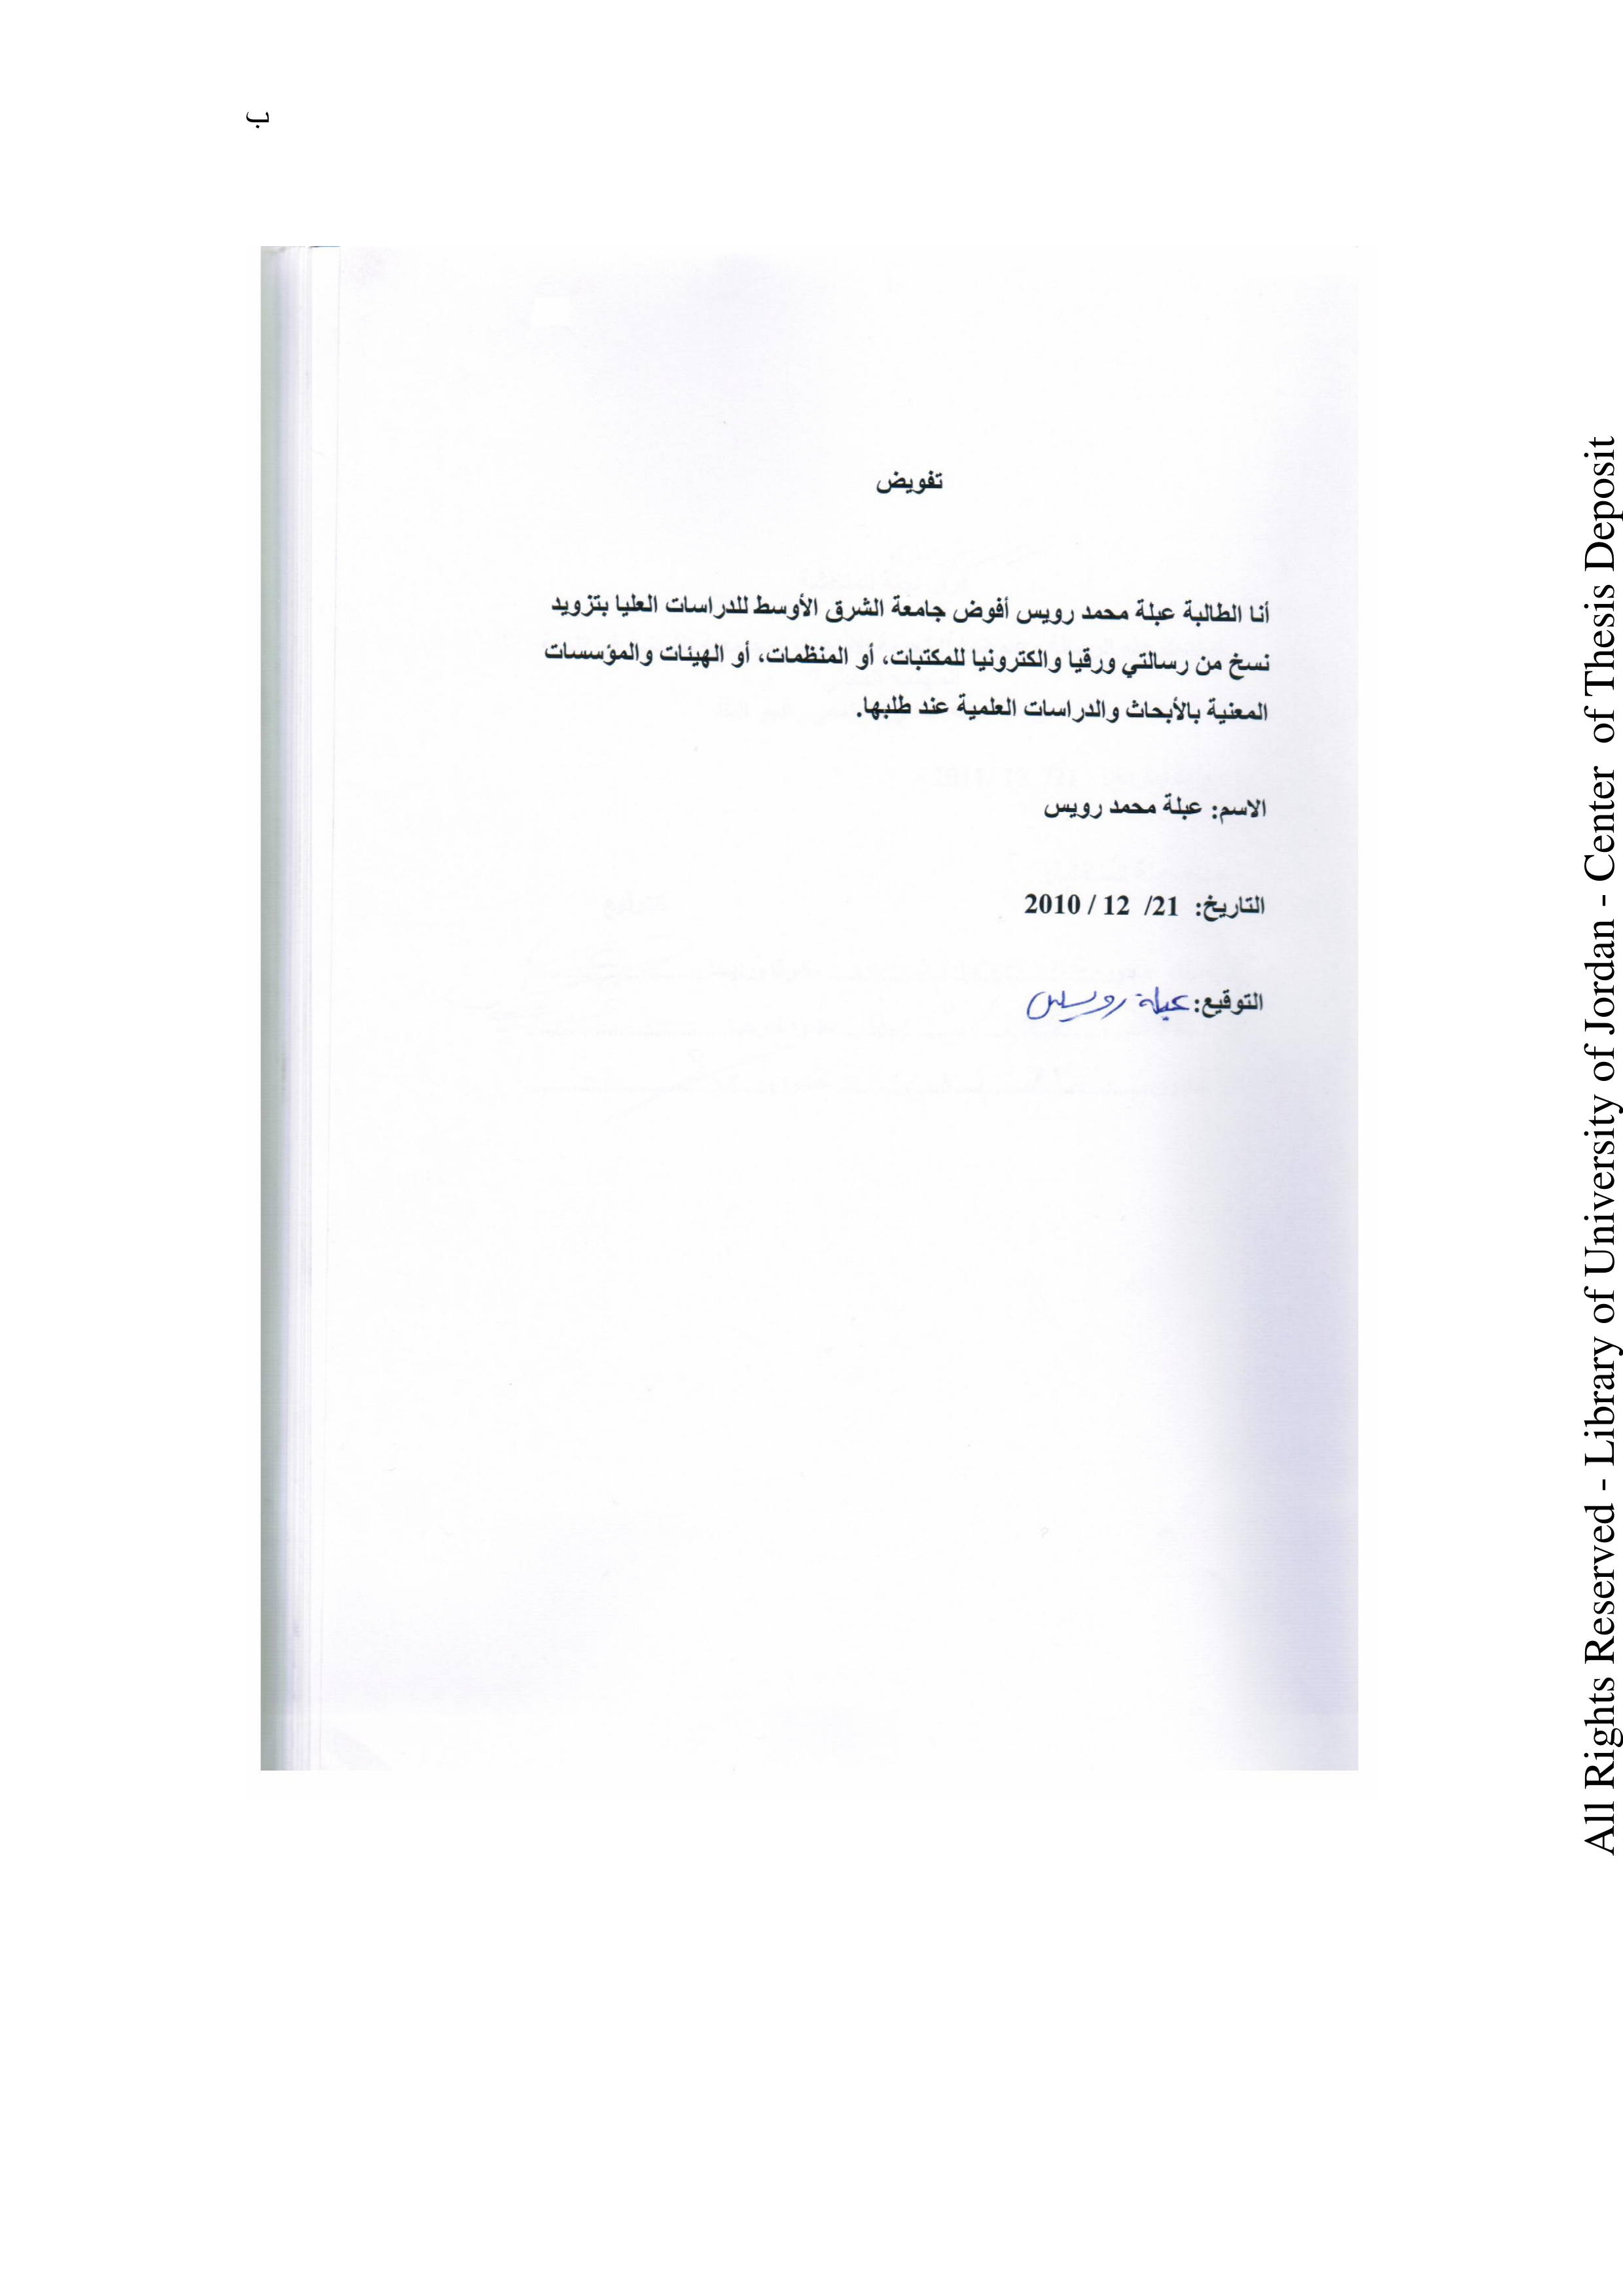 ب
تفويض
أنا الطالبة عبلة محمد رويس أفوض جامعة الشرق الأوسط للدراسات العليا بتزويد
نسخ من رسالتي ورقيا والكترونيا للمكتبات، أو المنظمات، أو الهيئات والمؤسسات
المعنية بالأبحاث والدراسات العلمية عند طلبها.
الاسم: عبلة محمد رويس
التاريخ: 21/ 12 / 2010
التوقيع: عبلة رويس
All Rights Reserved - Library of University of Jordan - Center of Thesis Deposit